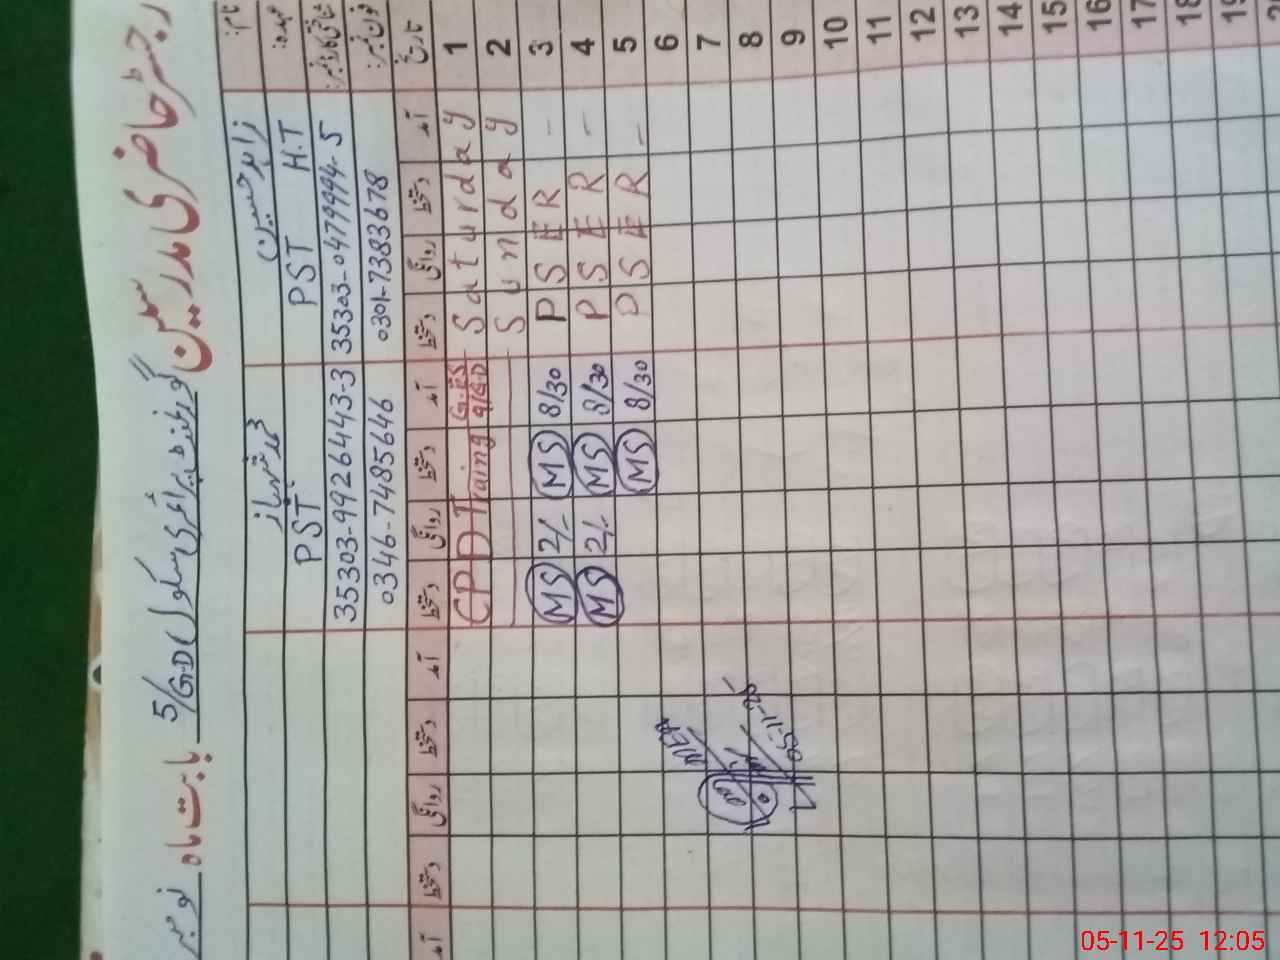 رجسٹر حاضری مدرسین گورنمنٹ پرائمری سکول 5/G.D بابت ماہ نومبر
نام: زاہد حسین محمد شہباز
عہدہ: PST H.T PST
شناختی کارڈ نمبر: 35303-0479994-5 35303-9926443-3
فون نمبر: 0301-7383678 0346-7485646
تاریخ آمد دستخط روانگی دستخط آمد دستخط روانگی دستخط آمد دستخط روانگی دستخط آمد
1 Saturday CPD Traing G.ES 9/G.D
2 Sunday
3 - PSER 8/30 MS 2/- MS
4 - PSER 8/30 MS 2/- MS
5 - PSER 8/30 MS
6
7
8
9
10
11
12
13
14
15
16
17
18
19
MEA
05-11-25
05-11-25 12:05